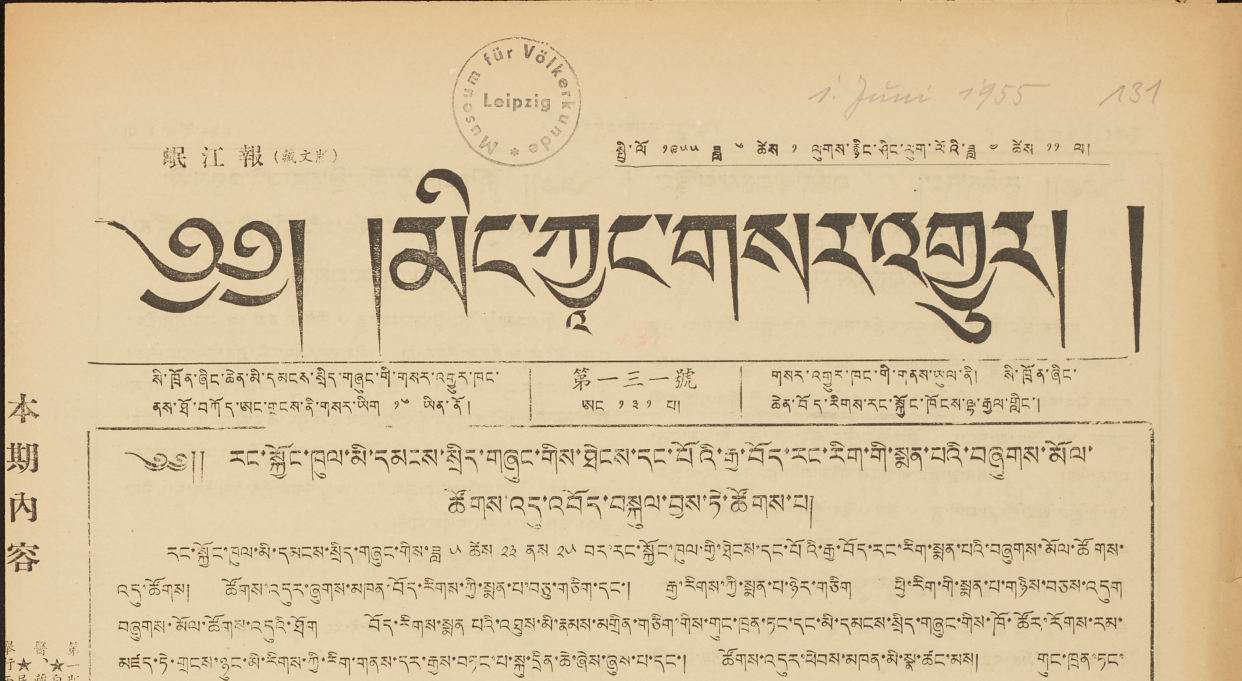 Museum für Völkerkunde
Leipzig
1. Juni 1955 131
岷江報(藏文附)
སྤྱི་ལོ ༡༩༥༥ ཟླ ༦ ཚེས ༡ ལུགས་རྙིང་ཤིང་ལུག་ལོའི་ཟླ ༤ ཚེས ༡༡ ལ།
༄༅། །མིང་ཀྱང་གསར་འགྱུར། །
སི་ཁྲོན་ཞིང་ཆེན་མི་དམངས་སྲིད་གཞུང་གི་གསར་འགྱུར་ཁང་
ནས་ཐོ་བཀོད་ཨང་གྲངས་ནི་གསར་ཡིག ༡༦ ཡིན་ནོ།
第一三一號
ཨང ༡༣༡ པ།
གསར་འགྱུར་ཁང་གི་གནས་ཡུལ་ནི། སི་ཁྲོན་ཞིང་
ཆེན་བོད་རིགས་རང་སྐྱོང་ཁོངས་ལྟ་རྒྱལ་གླིང་།
༄༅།། རང་སྐྱོང་ཁུལ་མི་དམངས་སྲིད་གཞུང་གིས་ཐེངས་དང་པོའི་རྒྱ་བོད་རང་རིག་གི་སྨན་པའི་བཞུགས་མོལ་
ཚོགས་འདུ་འབོད་བསྐུལ་བྱས་ཏེ་ཚོགས་པ།
རང་སྐྱོང་ཁུལ་མི་དམངས་སྲིད་གཞུང་གིས་ཟླ ༥ ཚེས ༢༣ ནས ༢༥ བར་རང་སྐྱོང་ཁུལ་གྱི་ཐེངས་དང་པོའི་རྒྱ་བོད་རང་རིག་སྨན་པའི་བཞུགས་མོལ་ཚོགས་
འདུ་ཚོགས། ཚོགས་འདུར་ཞུགས་མཁན་བོད་རིགས་ཀྱི་སྨན་པ་བཅུ་གཅིག་དང་། རྒྱ་རིགས་ཀྱི་སྨན་པ་ཉེར་གཅིག ཕྱི་རིག་གི་སྨན་པ་གཉིས་བཅས་འདུག
བཞུགས་མོལ་ཚོགས་འདུའི་ཐོག བོད་རིགས་སྨན་པའི་འཐུས་མི་རྣམས་མགྲིན་གཅིག་གིས་གུང་ཁྲན་ཏང་དང་མི་དམངས་སྲིད་གཞུང་གིས་ཁོ་ཚོར་རོགས་རམ་
མཛད་ཏེ་གྲངས་ཉུང་མི་རིགས་ཀྱི་རིག་གནས་དར་རྒྱས་བཏང་བ་སྐུ་དྲིན་ཆེ་ཞེས་ཞུས་པ་དང་། ཚོགས་འདུར་ཕེབས་མཁན་མི་སྣ་ཚང་མས། གུང་ཁྲན་ཏང་
本期內容